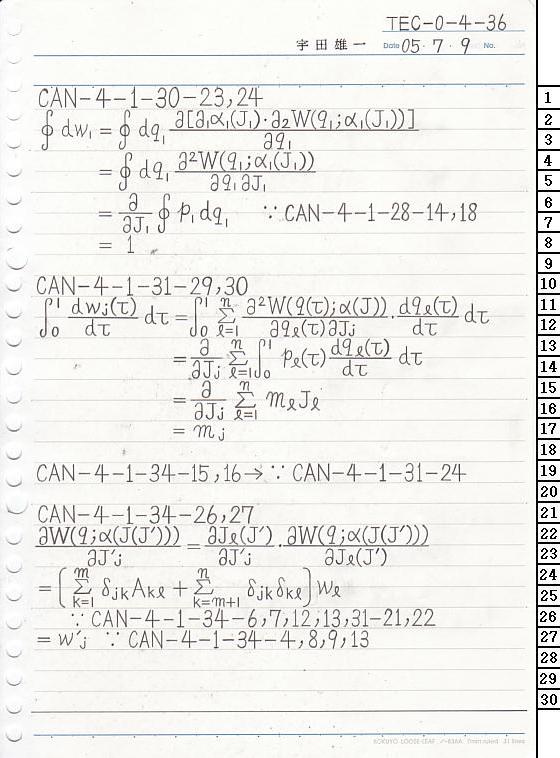 TEC-0-4-36
宇田雄一 Date 05・7・9 No.
CAN-4-1-30-23,24
∮dw₁ = ∮dq₁ ∂[∂₁α₁(J₁)・∂₂W(q₁;α₁(J₁))]/∂q₁
= ∮dq₁ ∂²W(q₁;α₁(J₁))/∂q₁∂J₁
= ∂/∂J₁ ∮p₁dq₁ ∵ CAN-4-1-28-14,18
= 1
CAN-4-1-31-29,30
∫₀¹ dwⱼ(τ)/dτ dτ = ∫₀¹ Σ_{ℓ=1}^{n} ∂²W(q(τ);α(J))/∂q_ℓ(τ)∂Jⱼ ・ dq_ℓ(τ)/dτ dτ
= ∂/∂Jⱼ Σ_{ℓ=1}^{n} ∫₀¹ p_ℓ(τ) dq_ℓ(τ)/dτ dτ
= ∂/∂Jⱼ Σ_{ℓ=1}^{n} m_ℓJ_ℓ
= mⱼ
CAN-4-1-34-15,16→∵ CAN-4-1-31-24
CAN-4-1-34-26,27
∂W(q;α(J(J')))/∂J'ⱼ = ∂J_ℓ(J')/∂J'ⱼ ・ ∂W(q;α(J(J')))/∂J_ℓ(J')
= [Σ_{k=1}^{m} δ_{jk}A_{kℓ} + Σ_{k=m+1}^{n} δ_{jk}δ_{kℓ}]w_ℓ
∵ CAN-4-1-34-6,7,12,13,31-21,22
= w'ⱼ ∵ CAN-4-1-34-4,8,9,13
1
2
3
4
5
6
7
8
9
10
11
12
13
14
15
16
17
18
19
20
21
22
23
24
25
26
27
28
29
30
KOKUYO LOOSE-LEAF ノ-836A 7mm ruled 31 lines